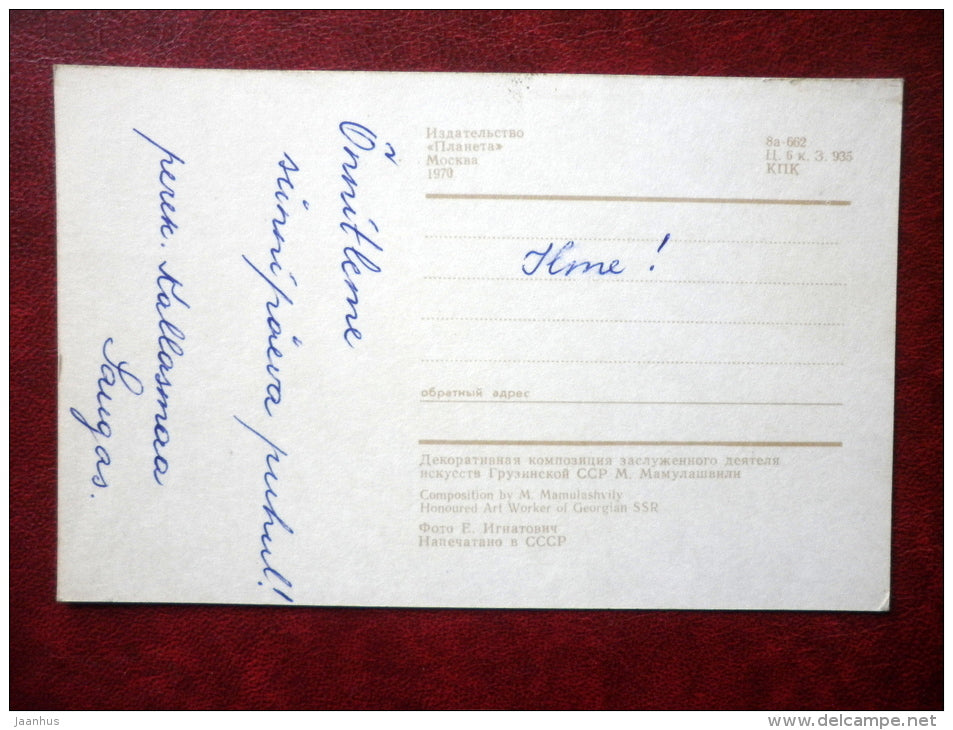 Õnnitleme
sünnipäeva puhul!
perek. Kallasmaa
Saugas.
Издательство
«Планета»
Москва
1970
8а-662
Ц. 6 к. З. 935
КПК
Ilme!
обратный адрес
Декоративная композиция заслуженного деятеля
искусств Грузинской ССР М. Мамулашвили
Composition by M. Mamulashvily
Honoured Art Worker of Georgian SSR
Фото Е. Игнатович
Напечатано в СССР
jaanhus
www.delcampe.net